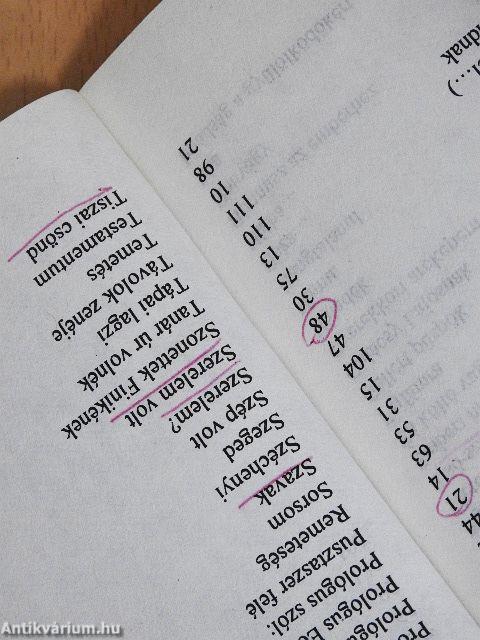 44
21
14
63
53
31
15
104
47
48
30
75
13
110
111
10
98
21
Prológus
Prológus
Prológus szól:
Pusztaszer felé
Remeteség
Sorsom
Szavak
Széchenyi
Szeged
Szép volt
Szerelem?
Szerelem volt
Szonettek Finikének
Tanár úr volnék
Tápai lagzi
Távolok zenéje
Temetés
Testamentum
Tiszai csönd
Antikvárium.hu